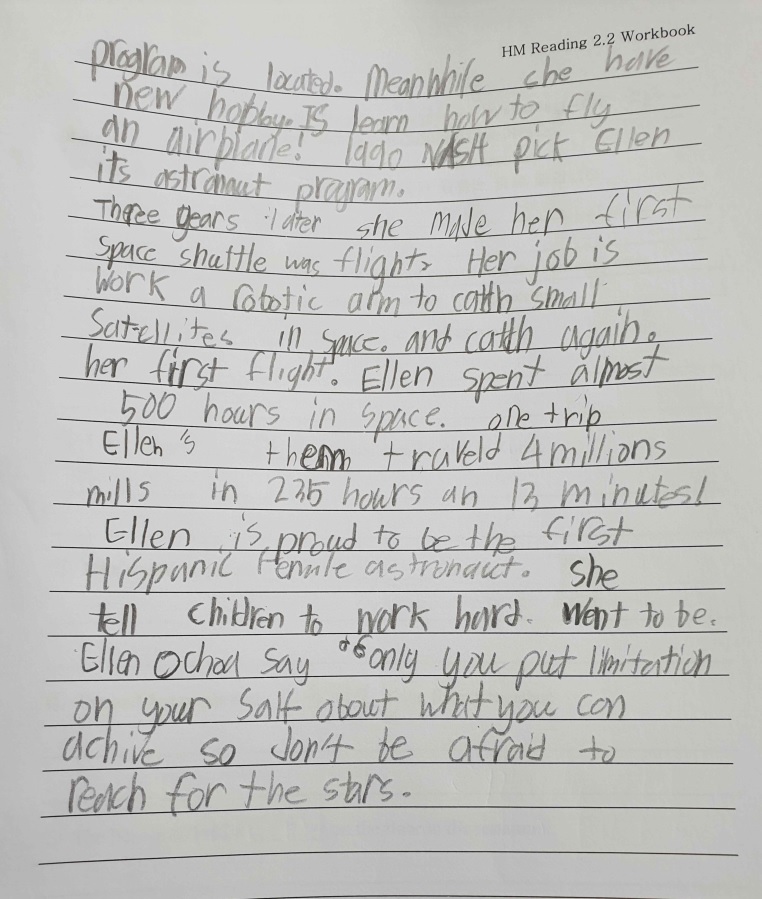 HM Reading 2.2 Workbook
program is located. Meanwhile she have
new hobby. IS learn how to fly
an airplane! 1990 NASA pick Ellen
its astronaut program.
Three years later she made her first
space shuttle was flights. Her job is
work a robotic arm to catth small
Satellites in space. and catth again.
her first flight. Ellen spent almost
500 hours in space. one trip
Ellen's them traveld 4 millions
mills in 235 hours an 13 minutes!
Ellen is proud to be the first
Hispanic female astronaut. she
tell children to work hard. Went to be.
Ellen Ochoa say "only you put limitation
on your salf about what you con
achive so don't be afraid to
reach for the stars.